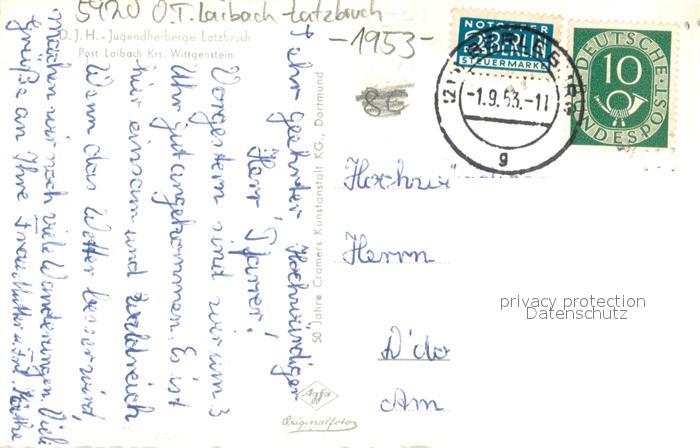 5920 O.T. Laibach-Latzbruch
-1953-
D.J.H.-Jugendherberge Latzbruch
Post Laibach Krs. Wittgenstein
8E
NOTOPFER
2 BERLIN
STEUERMARKE
DEUTSCHE
10
BUNDESPOST
-1.9.53.-11
g
Sehr geehrter, Hochwürdiger
Herr Pfarrer!
Vorgestern sind wir um 3
Uhr gut angekommen. Es ist
hier einsam und waldreich.
Wenn das Wetter besser wird,
machen wir noch viele Wanderungen. Viele
Grüße an Ihre Frau Mutter u. Frl. Käthe
50 Jahre Cramers Kunstanstalt KG., Dortmund
Agfa
Originalfoto
Hochwürdigen
Herrn
Am
privacy protection
Datenschutz